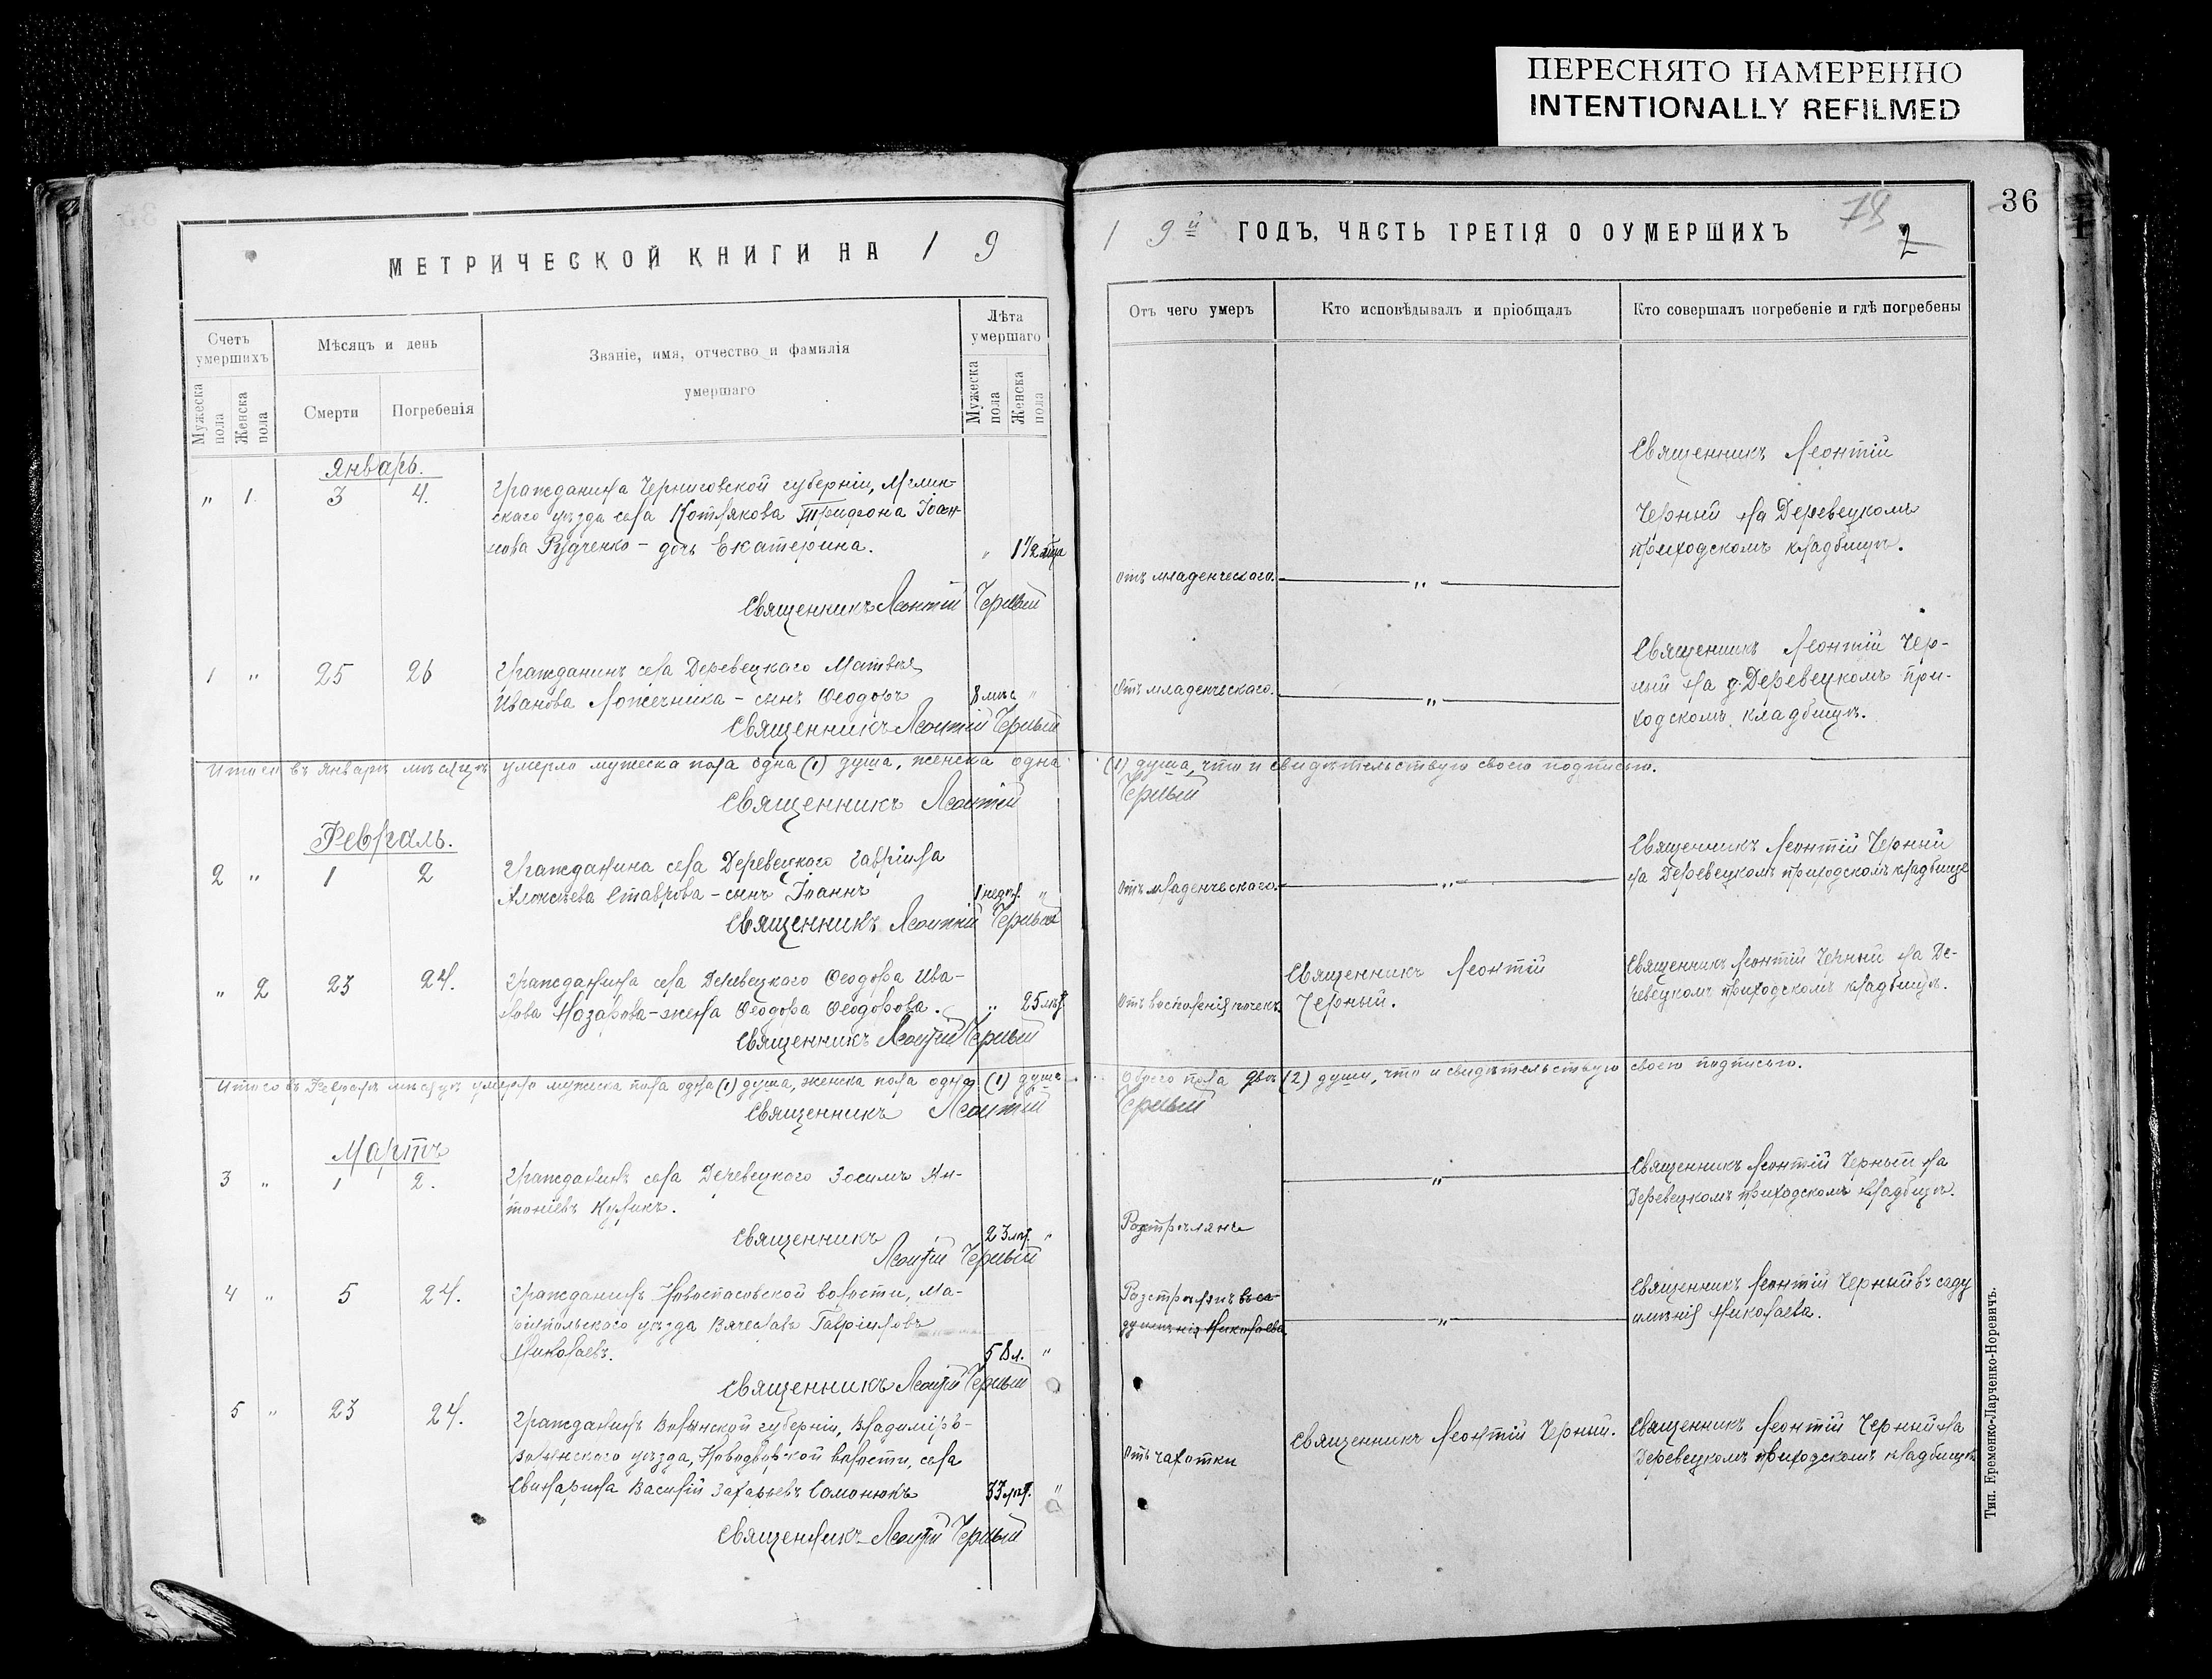 ПЕРЕСНЯТО НАМЕРЕННО
INTENTIONALLY REFILMED
36
МЕТРИЧЕСКОЙ КНИГИ НА 1 9
Счетъ умершихъ
Мужеска пола
Женска пола
Мѣсяцъ и день
Смерти
Погребенія
Званіе, имя, отчество и фамилія
умершаго
Лѣта умершаго
Мужеска пола
Женска пола
Январь.
" 1 3 4.
Гражданина Черниговской губерніи, Мглин-
скаго уѣзда села Котлякова Трифона Іоан-
нова Рудченко – дочь Екатерина.
" 1 1/2
Священникъ Леонтій Черный
1 " 25 26
Гражданинъ села Деревецкаго Матвѣя
Иванова Ложечника – сынъ Ѳеодоръ
8 мѣс "
Священникъ Леонтій Черный
Итого въ Январѣ мѣсяцѣ умерло мужеска пола одна (1) душа, женска одна
Священникъ Леонтій
Февраль.
2 " 1 2
Гражданина села Деревецкого Гавріила
Алексѣева Ставрова – сынъ Іоаннъ
1 недѣл. "
Священникъ Леонтій Черный
" 2 23 24.
Гражданина села Деревецкого Ѳеодора Ива-
нова Назарова – жена Ѳеодора Ѳеодорова.
" 25 лѣт
Священникъ Леонтій Черный
Итого въ Февралѣ мѣсяцѣ умерло мужеска пола одна (1) душа, женска пола одна (1) душа
Священникъ Леонтій
Мартъ
3 " 1 2.
Гражданинъ села Деревецкого Зосимъ Ан-
тоніевъ Куликъ.
23 лѣт. "
Священникъ
Леонтій Черный
4 " 5 24.
Гражданинъ Новоспасовской волости, Ма-
ріупольскаго уѣзда Вячеславъ Гавріиловъ
Николаевъ.
58 л. "
Священникъ Леонтій Черный
5 " 23 24.
Гражданинъ Волынской губерніи, Владиміръ-
Волынского уѣзда, Новодворской волости, села
Свинарина Василій Захарьевъ Самонюкъ
33 лѣт. "
Священникъ Леонтій Черный
1 9й ГОДЪ, ЧАСТЬ ТРЕТІЯ О ОУМЕРШИХЪ
2
Отъ чего умеръ
Кто исповѣдывалъ и пріобщалъ
Кто совершалъ погребеніе и гдѣ погребены
Священникъ Леонтій
Черный на Деревецкомъ
приходскомъ кладбищѣ.
Отъ младенческаго. "
Священникъ Леонтій Чер-
ный на д. Деревецкомъ при-
ходскомъ кладбищѣ.
Отъ младенческаго. "
(1) душа, что и свидѣтельствую своею подписью.
Черный
Священникъ Леонтій Черный
на Деревецкомъ приходскомъ кладбище
Отъ младенческаго. "
Отъ воспаленія почекъ.
Священникъ Леонтій
Черный.
Священникъ Леонтій Черный на Де-
ревецкомъ приходскомъ кладбищѣ.
Обоего пола двѣ (2) души, что и свидѣтельствую своею подписью.
Черный
Разстрѣлянъ
"
Священникъ Леонтій Черный на
Деревецкомъ приходскомъ кладбищѣ.
Разстрѣлянъ въ са-
ду имѣнія Николаева
"
Священникъ Леонтій Черный въ саду
имѣнія Николаева.
Отъ чахотки
Священникъ Леонтій Черный.
Священникъ Леонтій Черный на
Деревецкомъ приходскомъ кладбищѣ
Тип. Еременко-Ларченко-Норевичъ.